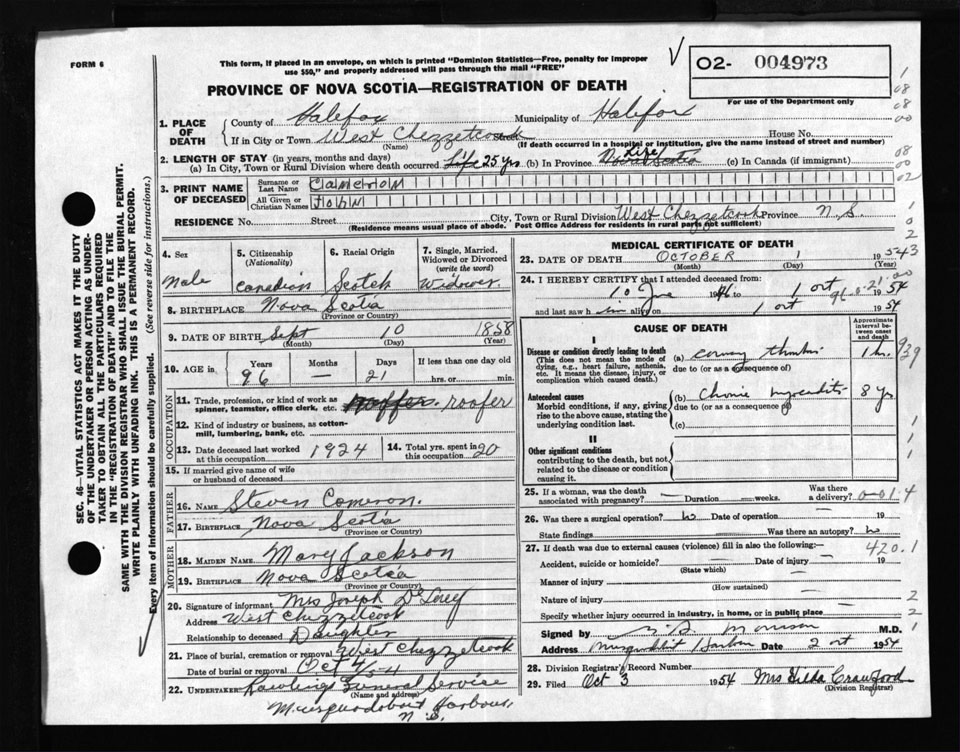 FORM 6
This form, if placed in an envelope, on which is printed "Dominion Statistics—Free, penalty for improper
use $50," and properly addressed will pass through the mail "FREE"
PROVINCE OF NOVA SCOTIA—REGISTRATION OF DEATH
O2- 004973
For use of the Department only
1. PLACE OF DEATH
County of Halifax Municipality of Halifax
If in City or Town West Chezzetcook Street House No.
(Name) (If death occurred in a hospital or institution, give the name instead of street and number)
2. LENGTH OF STAY (in years, months and days)
(a) In City, Town or Rural Division where death occurred Life 25 yrs (b) In Province Life Nova Scotia (c) In Canada (if immigrant)
3. PRINT NAME OF DECEASED
Surname or Last Name Cameron
All Given or Christian Names John
RESIDENCE No. Street City, Town or Rural Division West Chezzetcook Province N.S.
(Residence means usual place of abode. Post Office Address for residents in rural parts not sufficient)
4. Sex
Male
5. Citizenship
(Nationality)
Canadian
6. Racial Origin
Scotch
7. Single, Married, Widowed or Divorced
(write the word)
Widower
8. BIRTHPLACE Nova Scotia
(Province or Country)
9. DATE OF BIRTH Sept 10 1858
(Month) (Day) (Year)
10. AGE in
Years Months Days If less than one day old
96 — 21 hrs. or min.
OCCUPATION
11. Trade, profession, or kind of work as
spinner, teamster, office clerk, etc. roofer
12. Kind of industry or business, as cotton-
mill, lumbering, bank, etc.
13. Date deceased last worked at this occupation 1924
14. Total yrs. spent in this occupation 20
15. If married give name of wife
or husband of deceased
FATHER
16. NAME Steven Comeron.
17. BIRTHPLACE Nova Scotia
(Province or Country)
MOTHER
18. MAIDEN NAME Mary Jackson
19. BIRTHPLACE Nova Scotia
(Province or Country)
20. Signature of informant Mrs Joseph
Address West Chezzetcook
Relationship to deceased Daughter
21. Place of burial, cremation or removal West Chezzetcook
Date of burial or removal Oct 4/54
22. UNDERTAKER Rawlings Funeral Service
(Name and address)
Musquodoboit Harbour,
N.S.
MEDICAL CERTIFICATE OF DEATH
23. DATE OF DEATH OCTOBER 1 1954
(Month) (Day) (Year)
24. I HEREBY CERTIFY that I attended deceased from:
10 1946 to 1 oct 1954
and last saw him alive on 1 oct 1954
CAUSE OF DEATH
Approximate interval between onset and death
I
Disease or condition directly leading to death
(This does not mean the mode of dying, e.g., heart failure, asthenia, etc. It means the disease, injury, or complication which caused death.)
(a) 1 hr.
due to (or as a consequence of)
Antecedent causes
Morbid conditions, if any, giving rise to the above cause, stating the underlying condition last.
(b) Chronic myocarditis 8 yrs
due to (or as a consequence of)
(c)
II
Other significant conditions
contributing to the death, but not related to the disease or condition causing it.
25. If a woman, was the death associated with pregnancy? — Duration weeks. Was there a delivery?
26. Was there a surgical operation? No Date of operation — 19
State findings Was there an autopsy? No
27. If death was due to external causes (violence) fill in also the following:—
Accident, suicide or homicide? Date of injury 19
(State which)
Manner of injury
(How sustained)
Nature of injury
Specify whether injury occurred in industry, in home, or in public place
420.1
Signed by Morrison M.D.
Address Musquodoboit Harbour Date 2 oct 1954
28. Division Registrar's Record Number
29. Filed Oct 3 1954 Mrs Hilda Crawford
(Division Registrar)
SEC. 46—VITAL STATISTICS ACT MAKES IT THE DUTY
OF THE UNDERTAKER OR PERSON ACTING AS UNDER-
TAKER TO OBTAIN ALL THE PARTICULARS REQUIRED
IN THE "REGISTRATION OF DEATH" AND TO FILE THE
SAME WITH THE DIVISION REGISTRAR WHO SHALL ISSUE THE BURIAL PERMIT.
WRITE PLAINLY WITH UNFADING INK. THIS IS A PERMANENT RECORD.
Every item of Information should be carefully supplied. (See reverse side for instructions.)